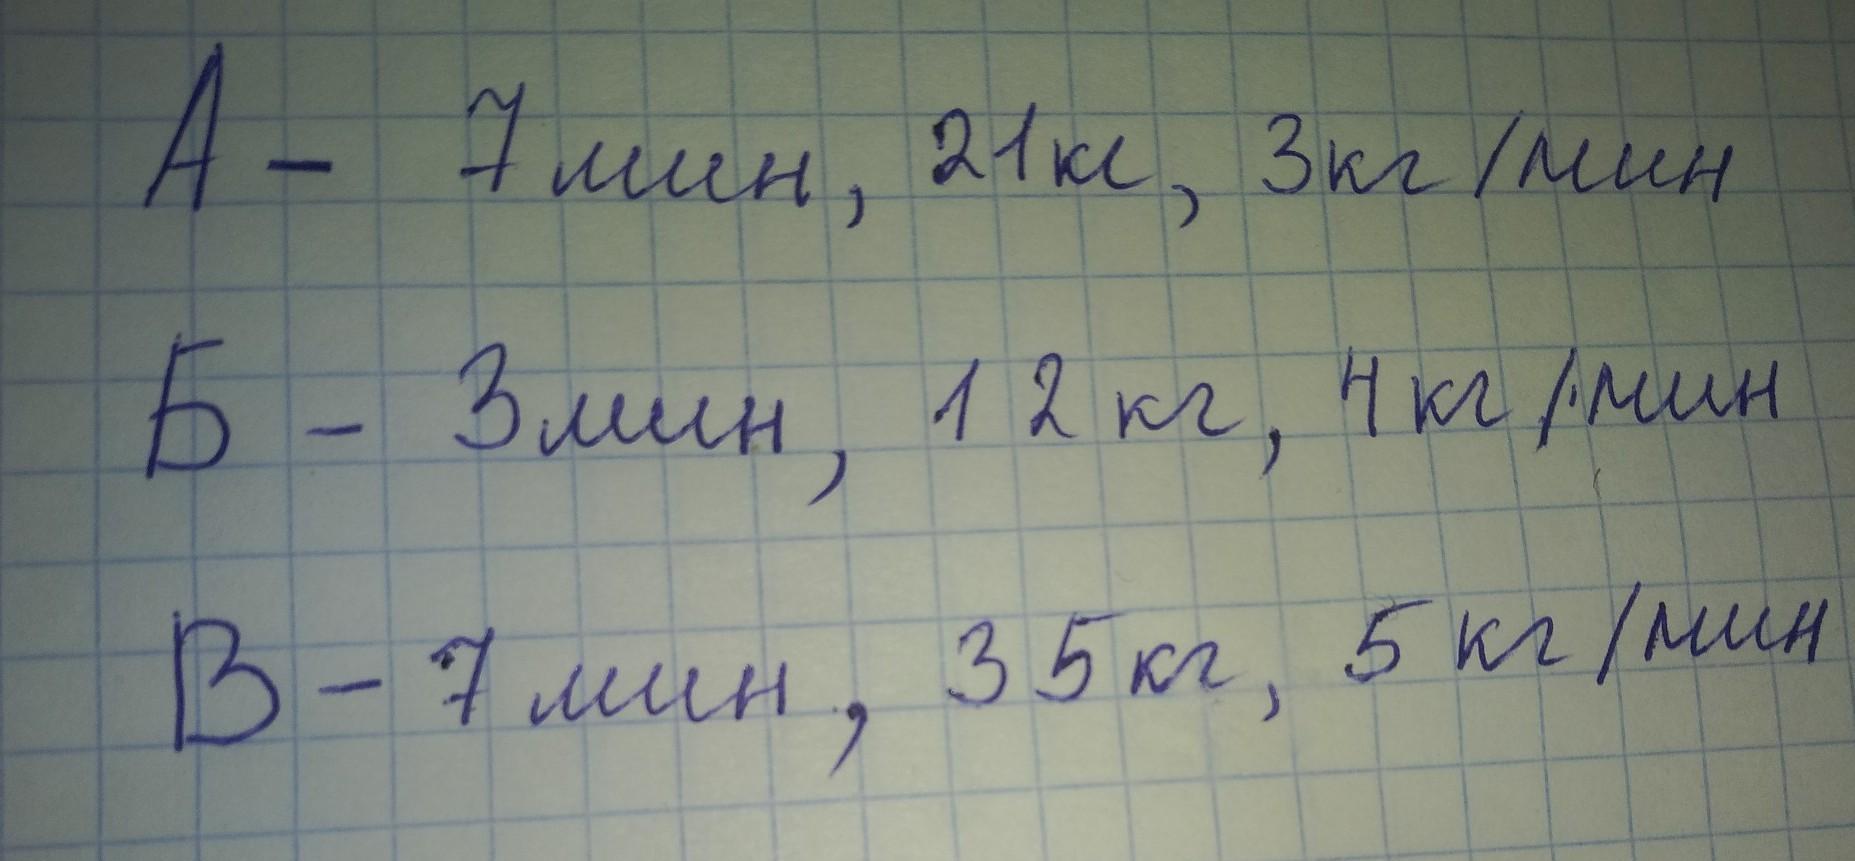 А - 7 мин, 21 кг, 3 кг/мин
Б - 3 мин, 12 кг, 4 кг/мин
В - 7 мин, 35 кг, 5 кг/мин